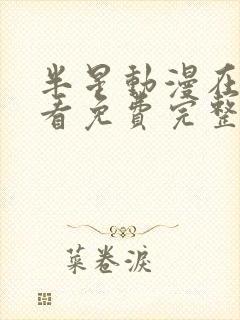 半星動漫在
看免費完整
菜卷淚